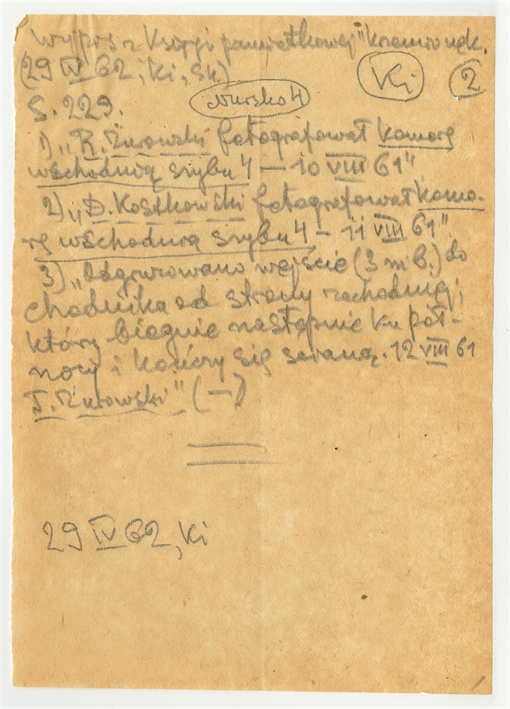 Wypis z Księgi pamiątkowej "krzemionek.
(29 IV 62, Ki, Sk) Ki 2
S. 229.
1) „R. Żurowski fotografował komorę
wschodnią szybu 4 — 10 VIII 61"
2) „D. Kostkowski fotografował komo-
rę wschodnią szybu 4 — 11 VIII 61"
3) „Odgruzowano wejście (3 m b.) do
chodnika od strony zachodniej,
który biegnie następnie ku pół-
nocy i kończy się ścianą. 12 VIII 61
T. Żurowski" (—)
29 IV 62, Ki